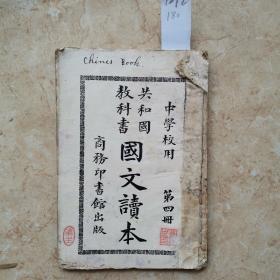 Chines Book.
中學校用
共和國
教科書
國文讀本
第四冊
商務印書館出版